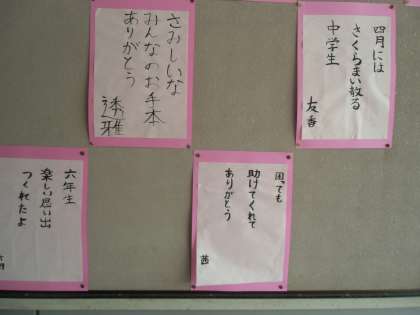 四月には
さくらまい散る
中学生
友香
さみしいな
みんなのお手本
ありがとう
透雅
困っても
助けてくれて
ありがとう
茜
六年生
楽しい思い出
つくれたよ